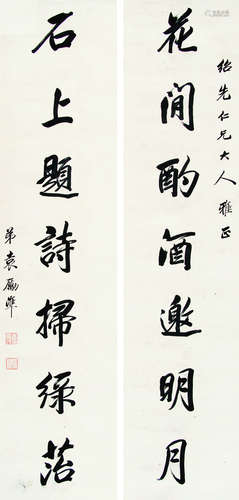 紹先仁兄大人雅正
花間酌酒邀明月
石上題詩掃綠苔
弟袁勵準